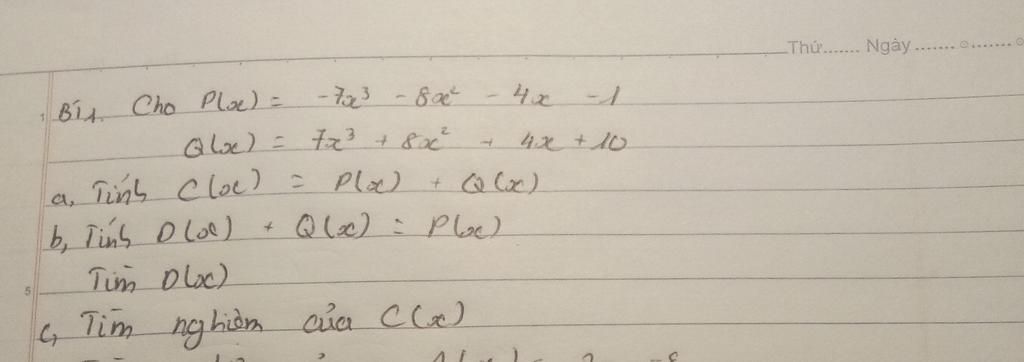 Thứ....... Ngày .......
BT1. Cho P(x) = -7x³ - 8x² - 4x - 1
Q(x) = 7x³ + 8x² + 4x + 10
a, Tính C(x) = P(x) + Q(x)
b, Tính D(x) + Q(x) = P(x)
Tìm D(x)
5
c, Tìm nghiệm của C(x)